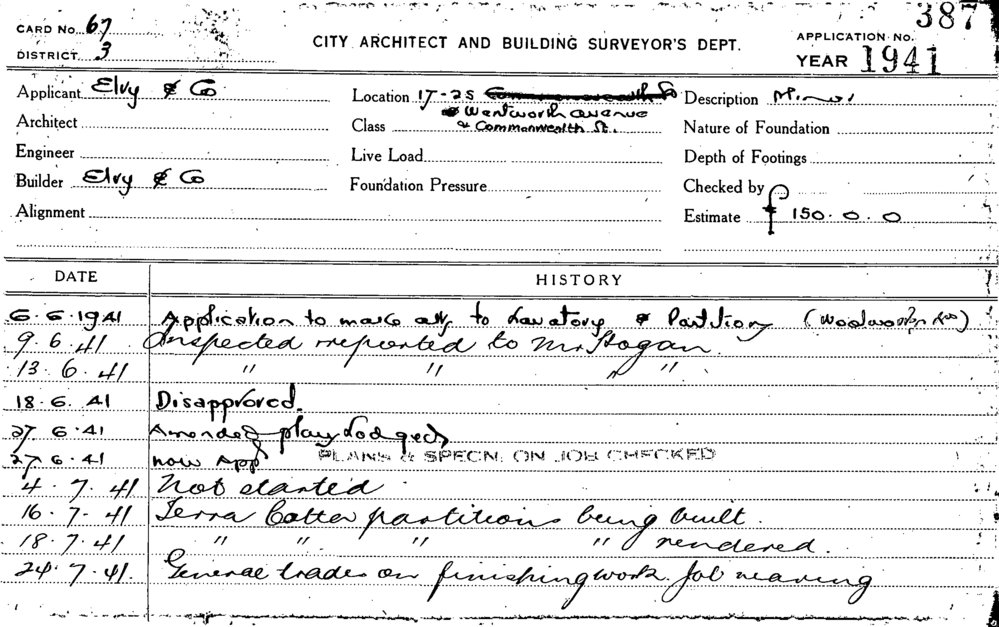 387
CARD No. 67
APPLICATION No.
DISTRICT 3
CITY ARCHITECT AND BUILDING SURVEYOR'S DEPT.
YEAR 1941
Applicant Elvy & Co
Location 17-25
Wentworth avenue
Description Minor
Architect
Class & Commonwealth St.
Nature of Foundation
Engineer
Live Load
Depth of Footings
Builder Elvy & Co
Foundation Pressure
Checked by
Alignment
Estimate £ 150. 0. 0
DATE HISTORY
6.6.1941 Application to make alts to Lavatory & Partition (Woolworths)
9.6.41 Inspected & reported to Mr Hogan.
13.6.41 " " " "
18.6.41 Disapproved.
27.6.41 Amended plans lodged
27.6.41 now App PLANS & SPECN. ON JOB CHECKED
4.7.41 Not started
16.7.41 Terra Cotta partitions being built.
18.7.41 " " " " rendered.
24.7.41. General trades on finishing work. Job nearing